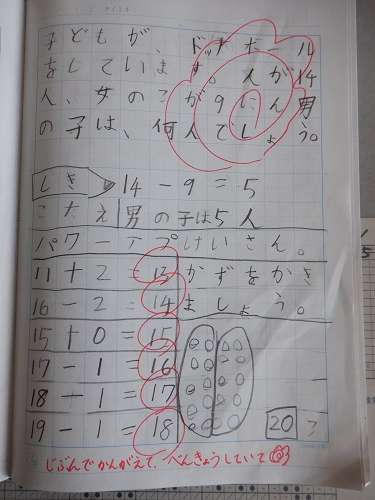 子どもが、ドッチボール
をしています。人が14
人、女の子が9にん男
の子は、何人でしょう。
しき 14－9＝5
こたえ 男の子は5人
パワーアップけいさん。
11＋2＝13 かずをかき
16－2＝14 ましょう。
15＋0＝15
17－1＝16
18－1＝17
19－1＝18 20
じぶんでかんがえて、べんきょうしていて